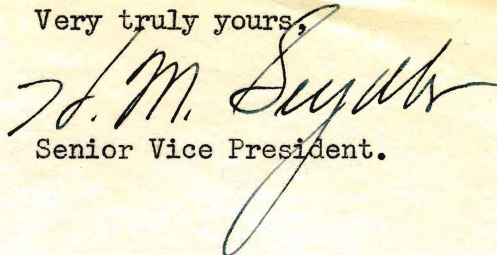 Very truly yours,
H. M.
Senior Vice President.